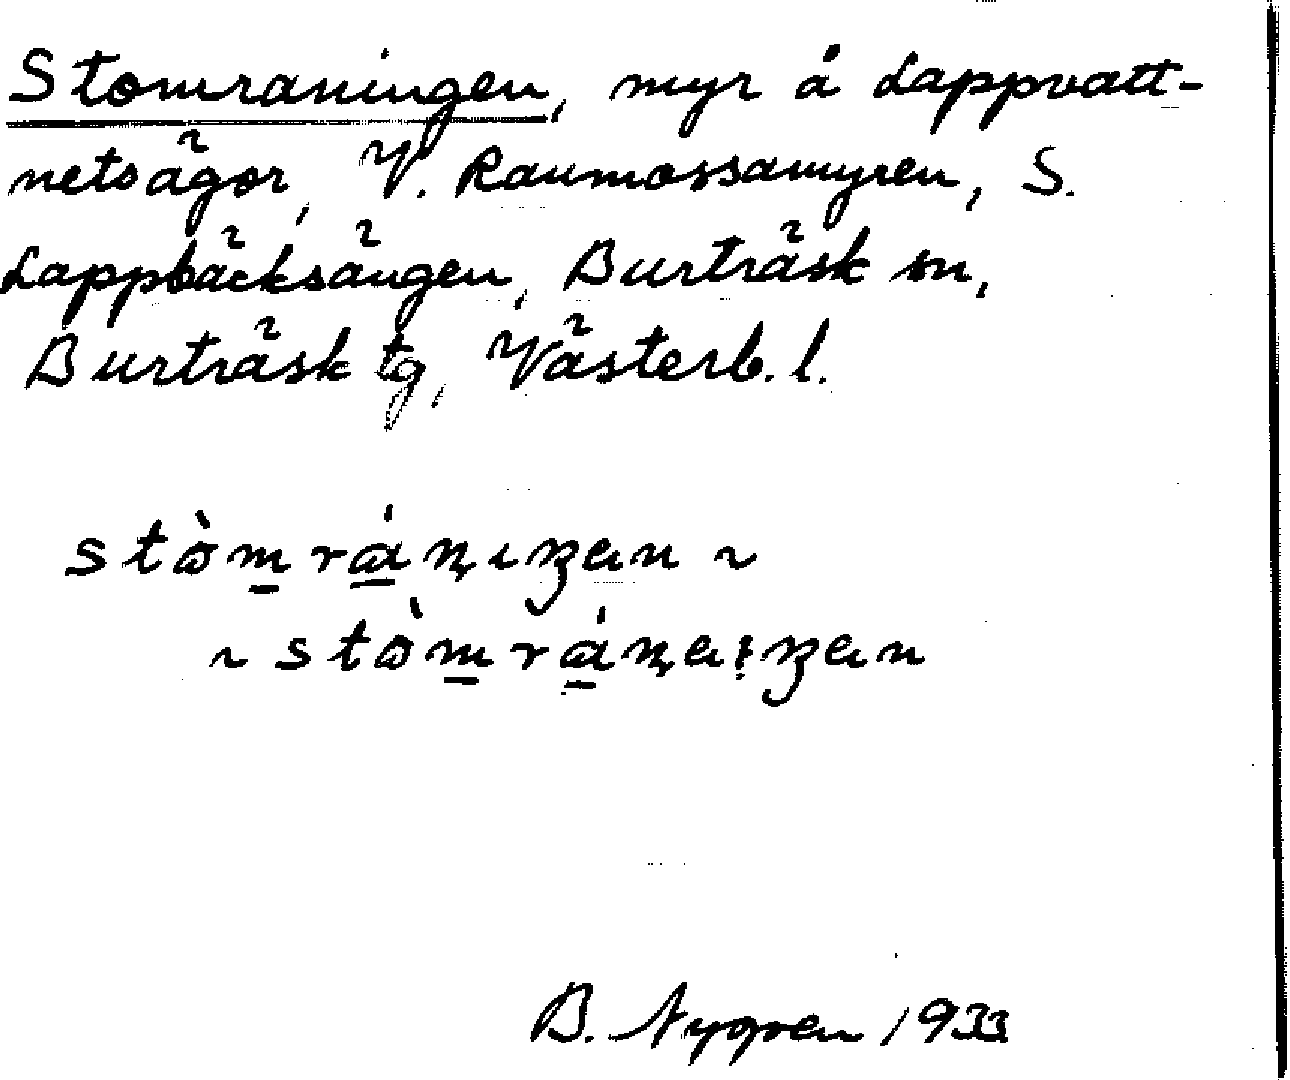 Stomraningen, myr å Lappvatt-
netsägor, V. Raumossamyren, S.
Lappbäcksängen, Burträsk sn,
Burträsk tg, Västerb. l.
B. Nygren 1933